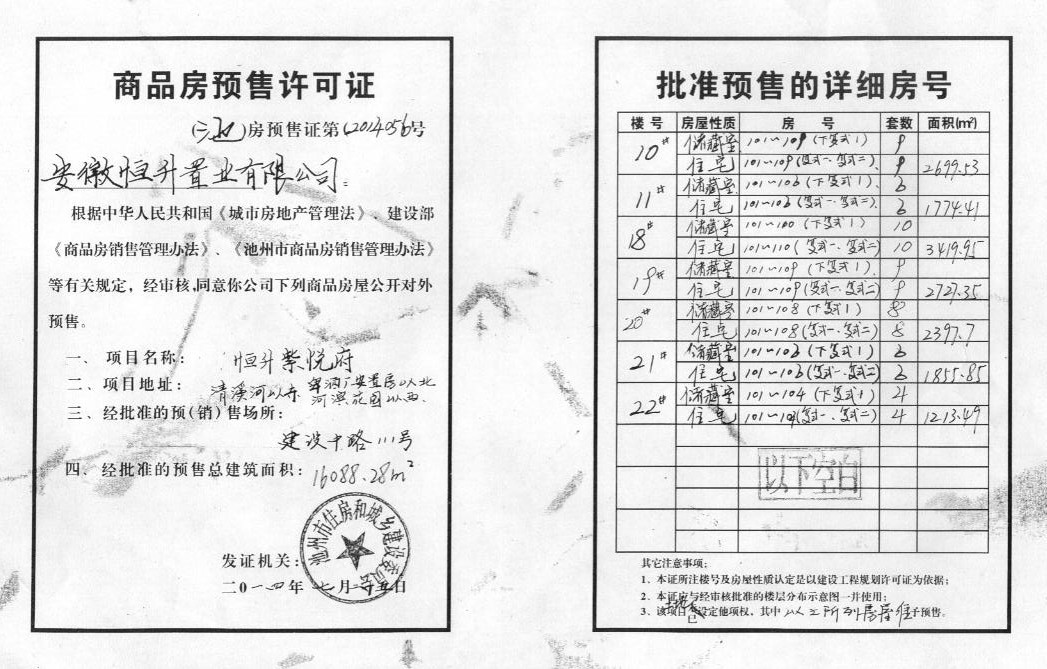 商品房预售许可证
(池)房预售证第(2014056)号
安徽恒升置业有限公司:
根据中华人民共和国《城市房地产管理法》、建设部
《商品房销售管理办法》、《池州市商品房销售管理办法》
等有关规定，经审核,同意你公司下列商品房屋公开对外
预售。
一、项目名称: 恒升紫悦府
二、项目地址: 清溪河以东 安置房以北
河滨花园以西、
三、经批准的预(销)售场所:
建设中路111号
四、经批准的预售总建筑面积: 16088.28m²
池州市住房和城乡建设委员会
发证机关:
二0一四年七月二十五日
批准预售的详细房号
楼号 房屋性质 房号 套数 面积(㎡)
10# 储藏室 101~109(下复式1) 9
住宅 101~109(复式一、复式二) 9 2699.53
11# 储藏室 101~106(下复式1)、 6
住宅 101~106(复式一、复式二)、 6 1774.41
18# 储藏室 (下复式1) 10
住宅 101~110(复式一、复式二) 10 3419.95
19# 储藏室 101~109(下复式1)、 9
住宅 101~109(复式一、复式二) 9 2727.35
20# 储藏室 101~108(下复式1) 8
住宅 101~108(复式一、复式二) 8 2397.7
21# 储藏室 101~106(下复式1) 6
住宅 101~106(复式一、复式二) 6 1855.85
22# 储藏室 101~104(下复式1) 4
住宅 101~104(复式一、复式二) 4 1213.49
以下空白
其它注意事项:
1．本证所注楼号及房屋性质认定是以建设工程规划许可证为依据;
2．本证应与经审核批准的楼层分布示意图一并使用;
3．该项目土地已设定他项权，其中以上所列房屋准予预售。